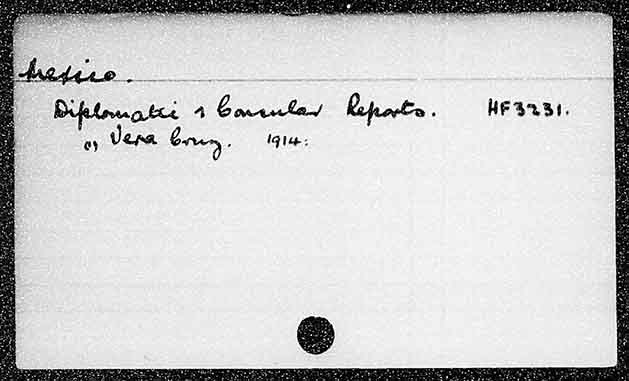 Mexico.
Diplomatic & Consular Reports. HF3231.
(1) Vera Cruz. 1914.